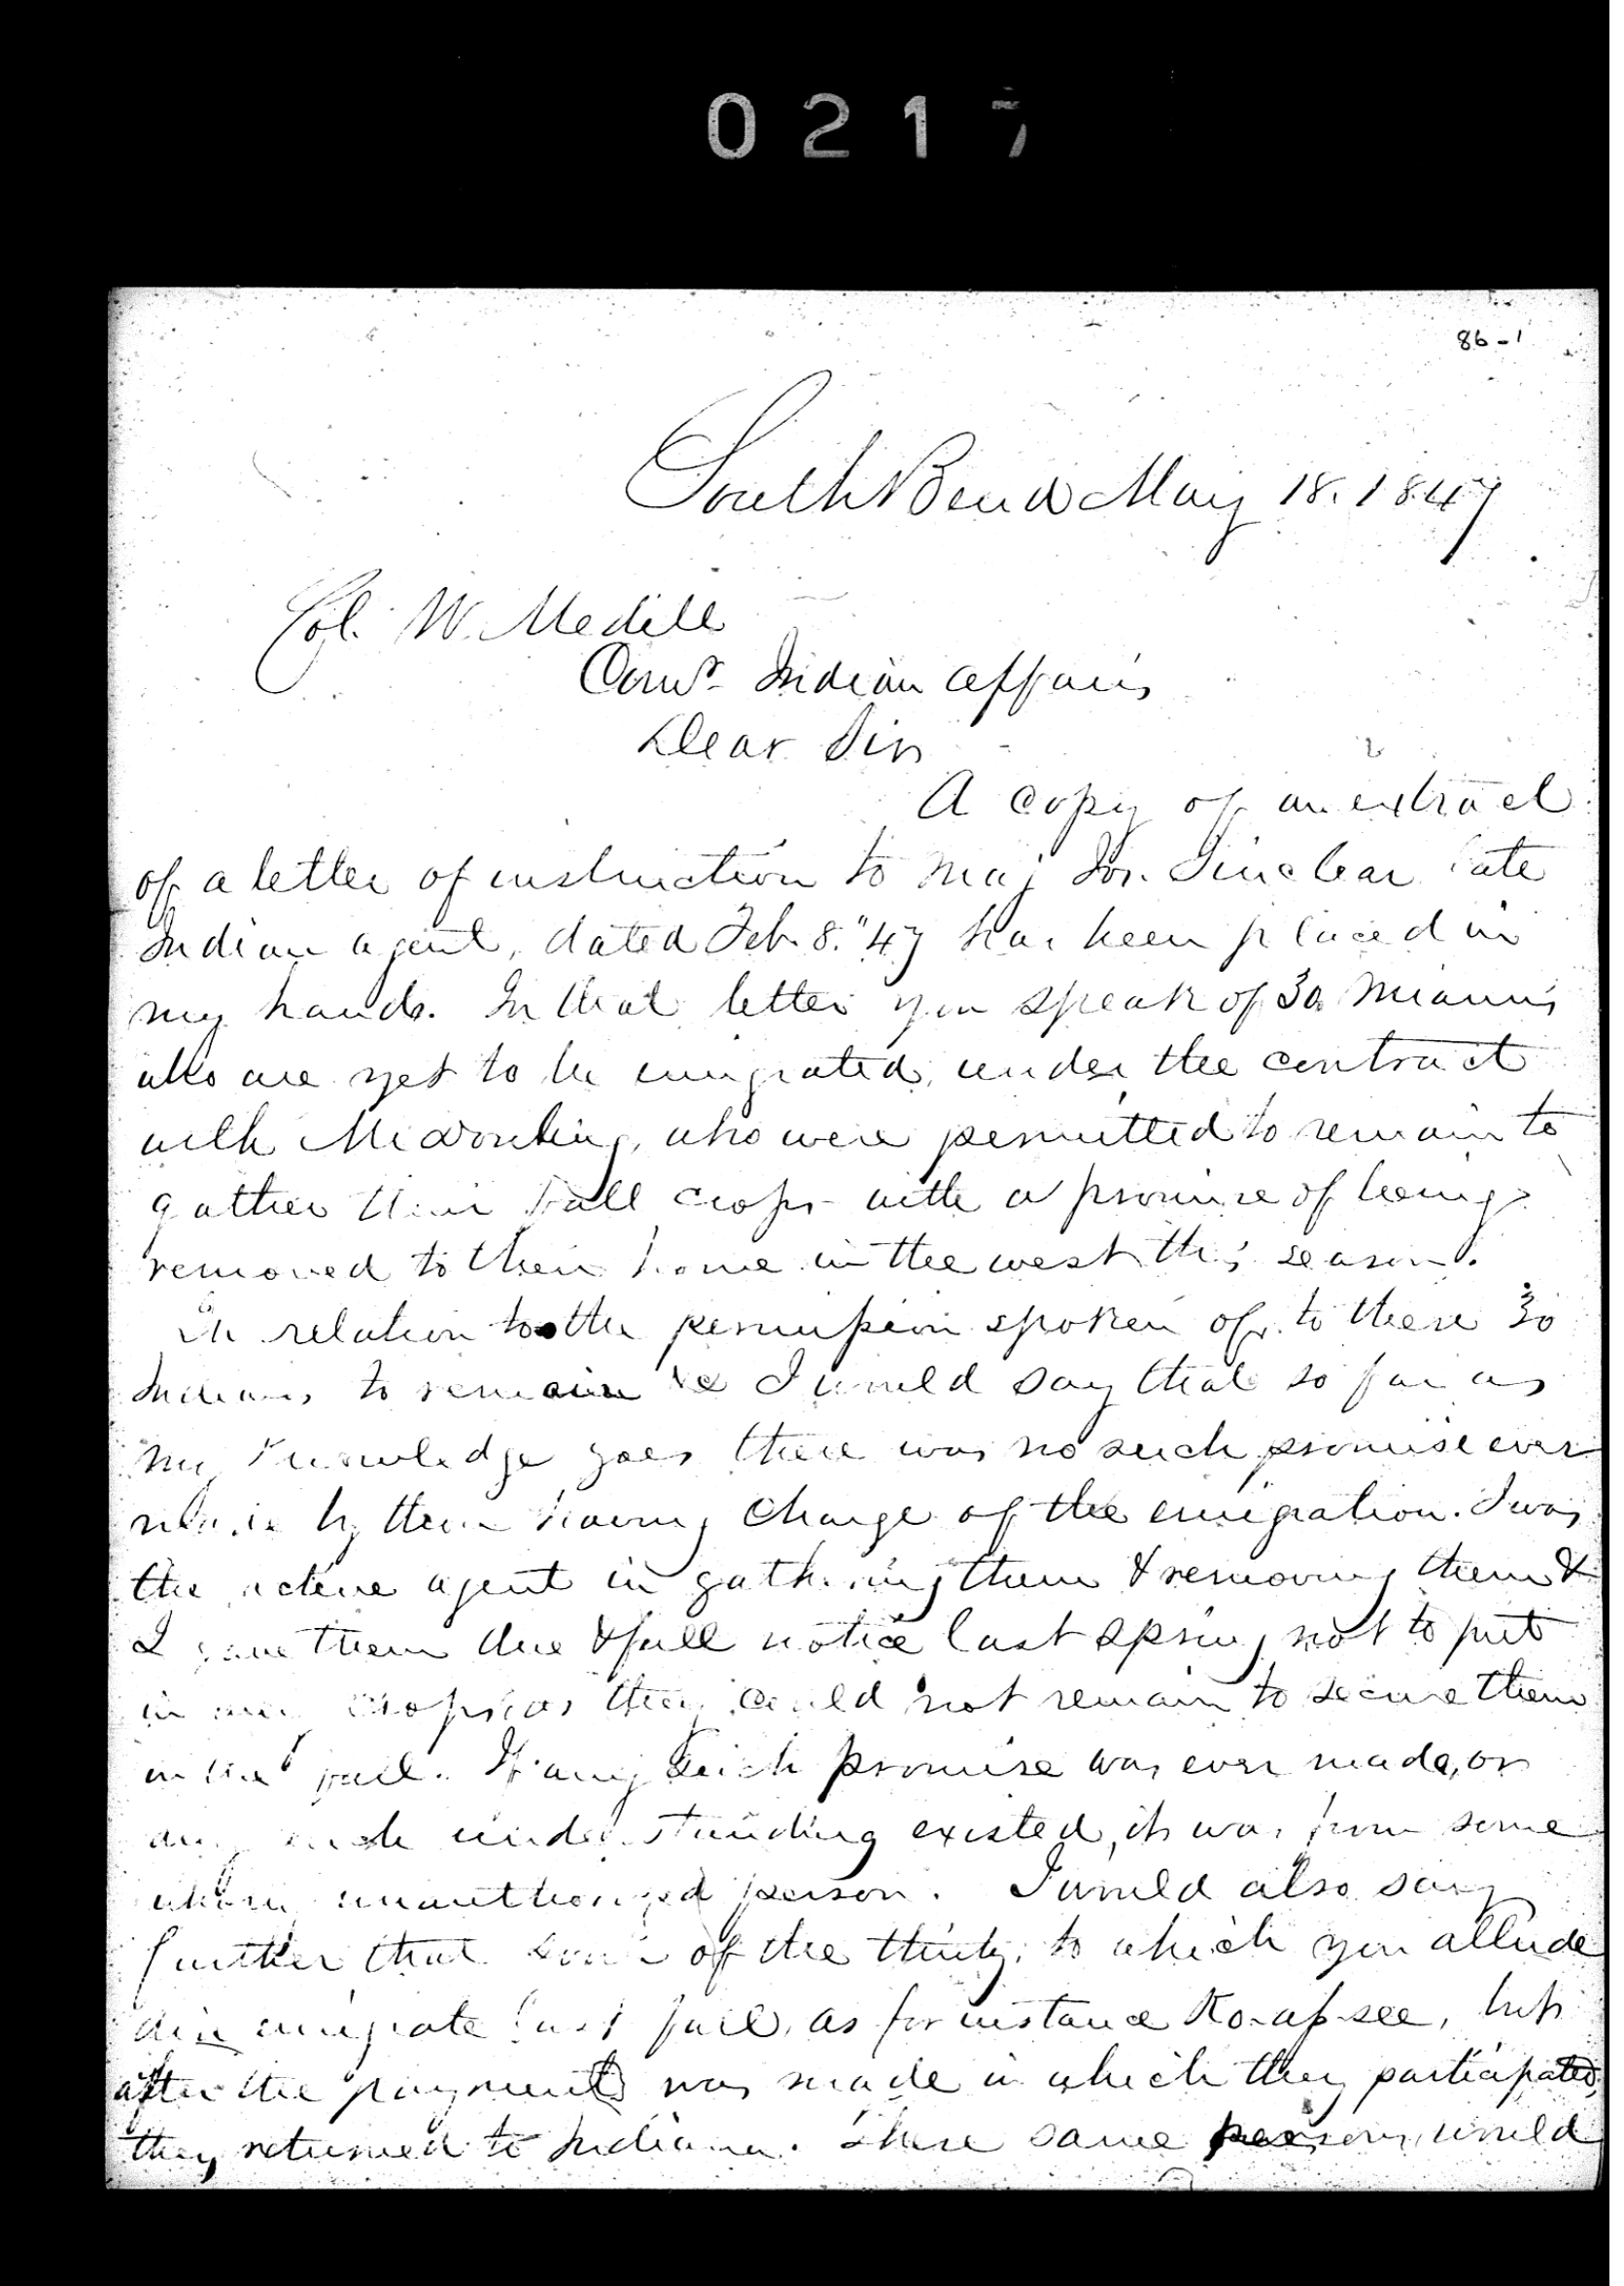 0217
86-1
South Bend May 18. 1847
Col. W. Medill
Comr. Indian Affairs
Dear Sir
A copy of an extract
of a letter of instruction to Maj Jos. Sinclear late
Indian agent, dated Feb. 8. "47 has been placed in
my hands. In that letter you speak of 30 Miamis
who are yet to be emigrated, under the contract
with
who were permitted to remain to
gather their Fall crops with a promise of being
removed to their home in the west this season.
In relation to the permission spoken of, to these 30
Indians to remain &c I would say that so far as
my knowledge goes there was no such promise ever
made by those having charge of the emigration. I was
the active agent in gathering them & removing them &
I gave them due & full notice last spring not to put
in any crops as they could not remain to secure them
in the fall. If any such promise was ever made, or
any such understanding existed, it was from some
unauthorized person. I would also say
further that some of the thirty, to which you allude
did emigrate last fall, as for instance Ko-ap-see, but
after the payment was made in which they participated,
they returned to Indiana. These same persons, would